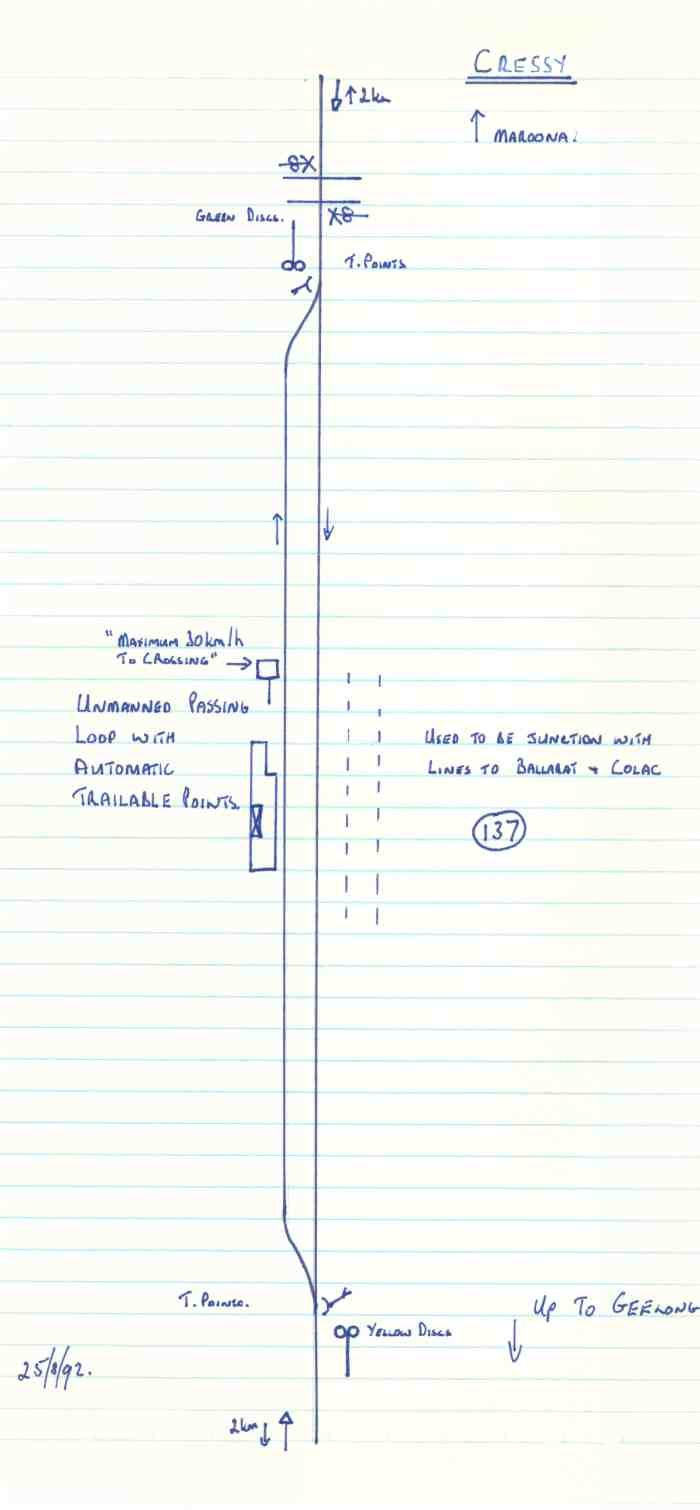 CRESSY
2km
MAROONA.
GREEN DISCS.
T. POINTS
"MAXIMUM 30km/h
TO CROSSING"
UNMANNED PASSING
LOOP WITH
AUTOMATIC
TRAILABLE POINTS
USED TO BE JUNCTION WITH
LINES TO BALLARAT & COLAC
137
T. POINTS.
UP TO GEELONG
YELLOW DISCS
25/8/92.
2km